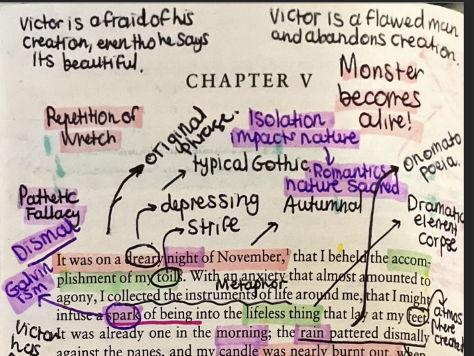 Victor is afraid of his
creation, even tho he says
its beautiful.
Victor is a flawed man
and abandons creation.
CHAPTER V
Monster
becomes
alive!
Repetition of
Wretch
original
phrase.
Isolation
impacts nature
typical Gothic
Romantics
nature sacred
onomato
poeia.
Pathetic
Fallacy
Dismal
depressing
Autumnal
Dramatic
element
corpse
strife
Galvin
ism
It was on a dreary night of November,¹ that I beheld the accom-
plishment of my toils. With an anxiety that almost amounted to
agony, I collected the instruments of life around me, that I might
Metaphor
infuse a spark of being into the lifeless thing that lay at my feet.
atmos
where
created
Victor
has
It was already one in the morning; the rain pattered dismally
against the panes, and my candle was nearly burnt out, when